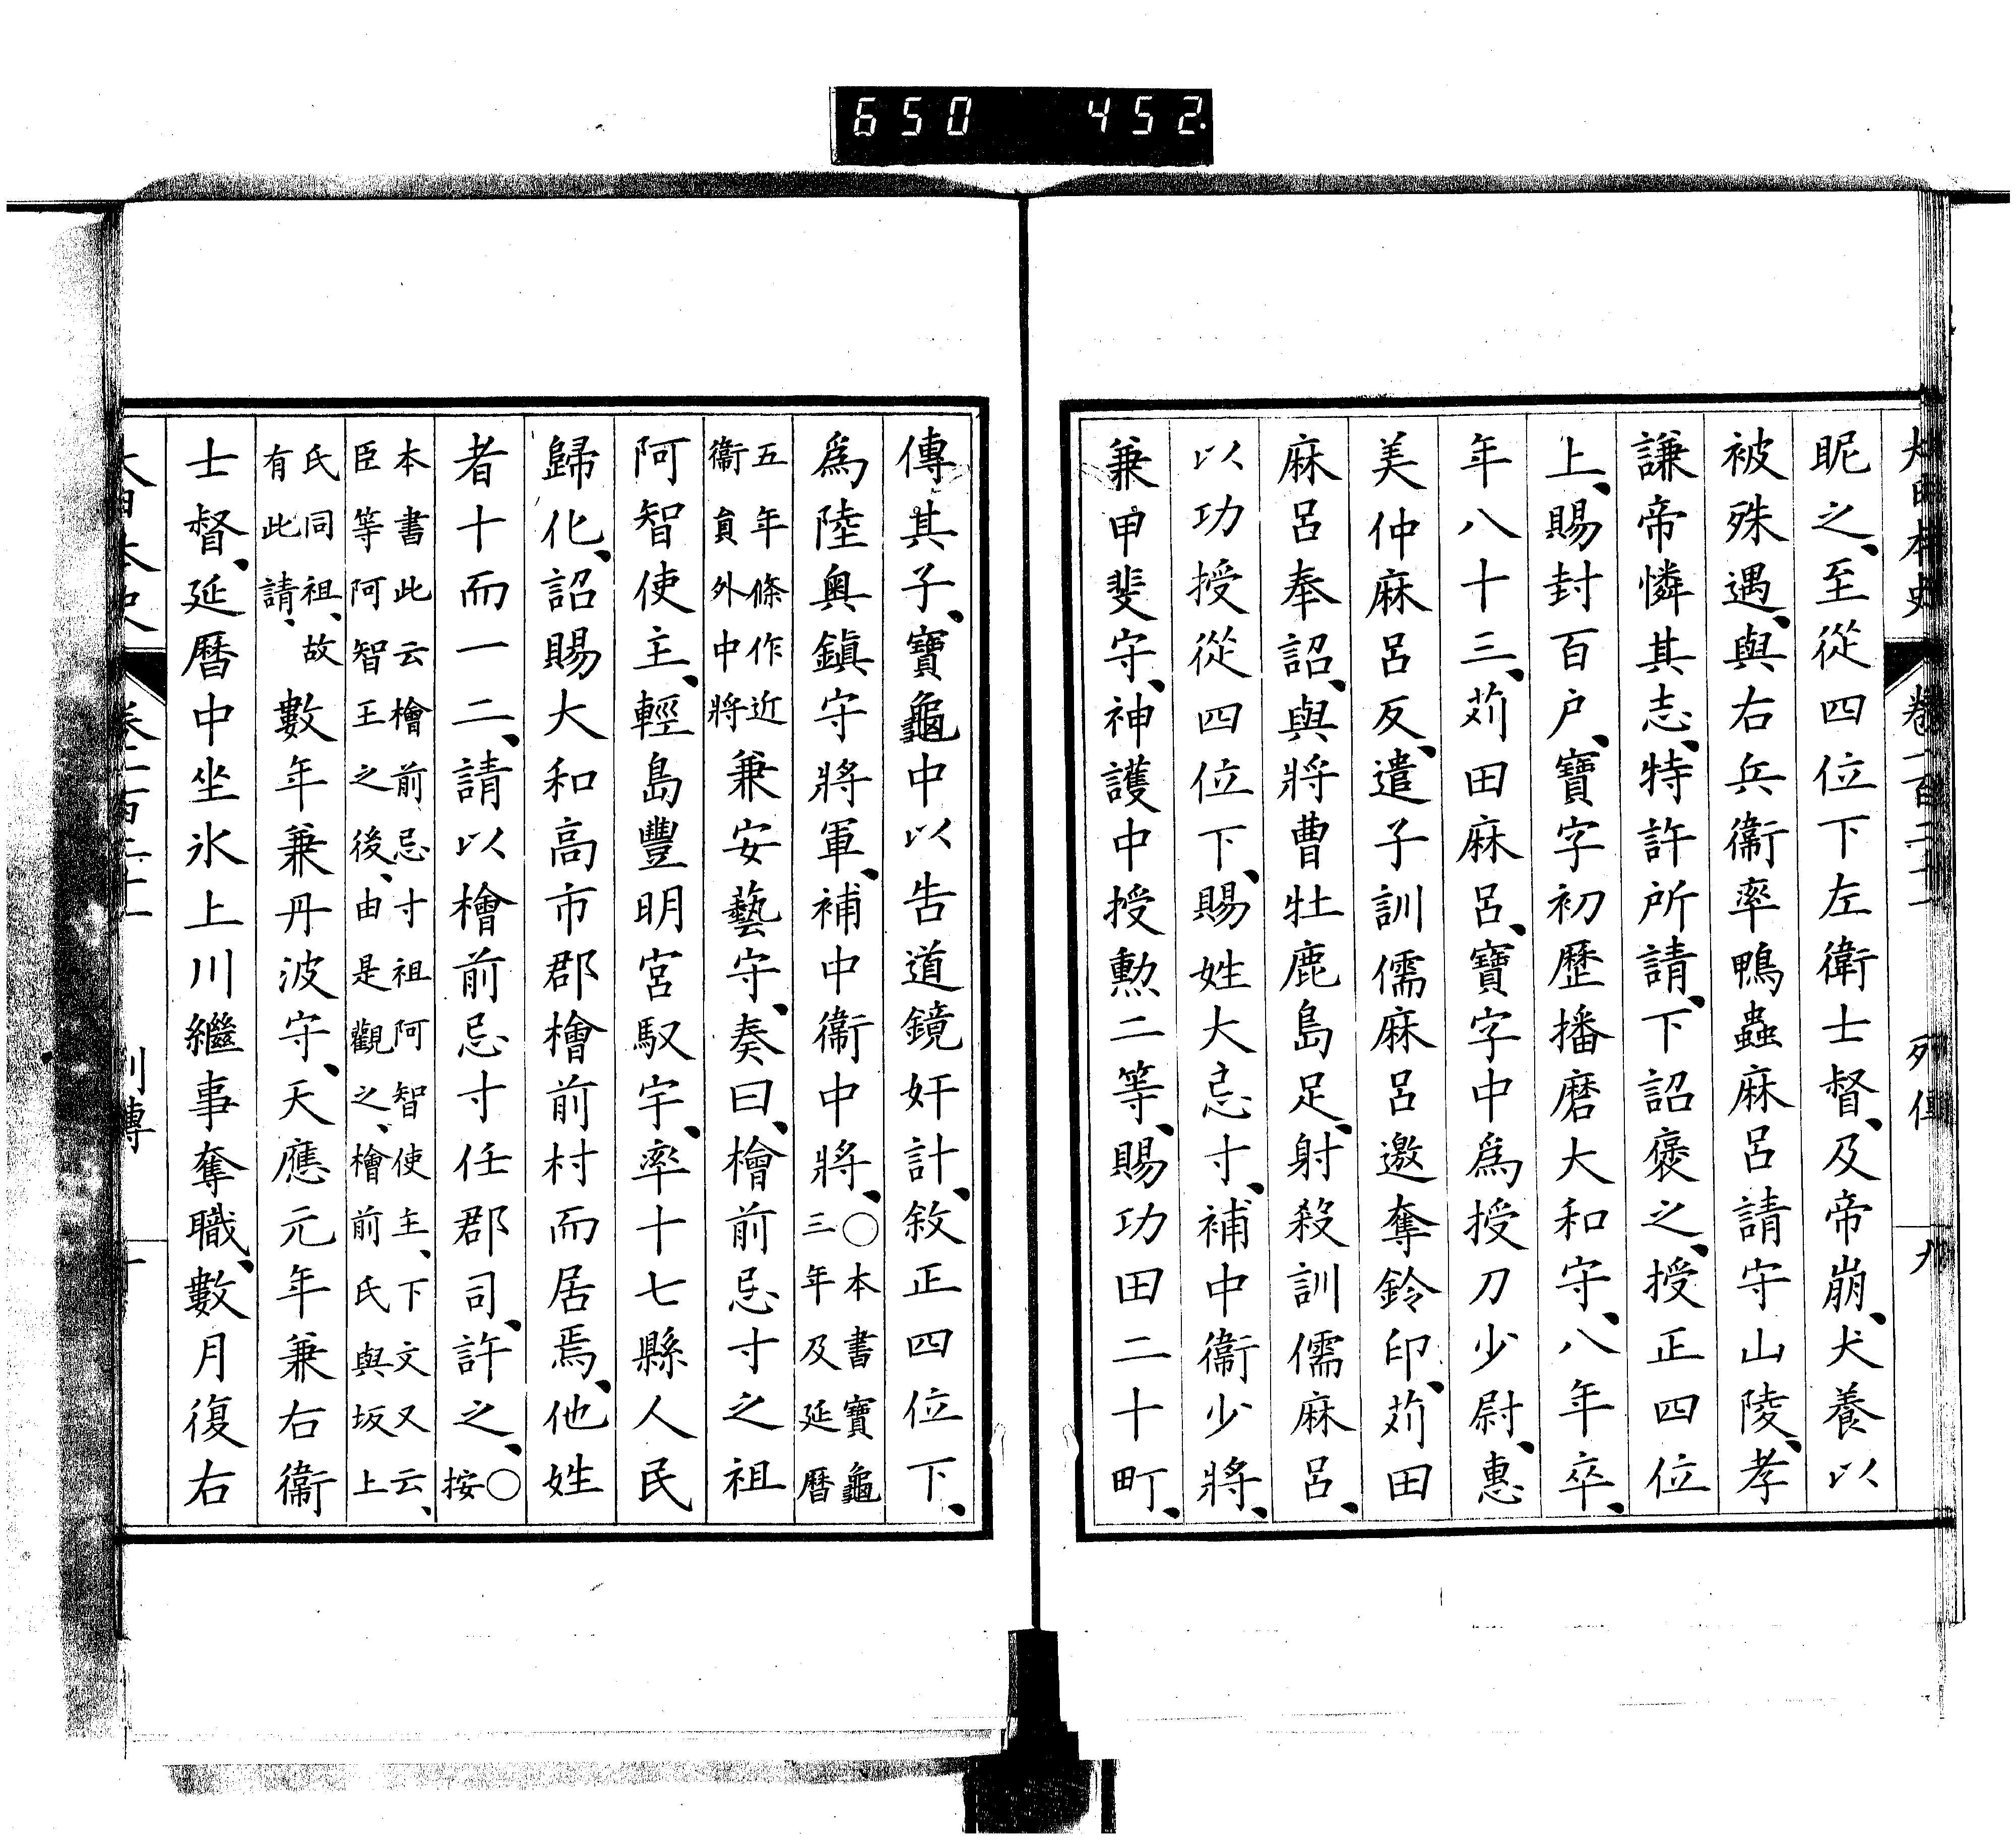 650 452.
大日本史 卷一百二十一 列傳 九
昵之、至從四位下左衛士督、及帝崩、犬養以
被殊遇、與右兵衞率鴨蟲麻呂請守山陵、孝
謙帝憐其志、特許所請、下詔褒之、授正四位
上、賜封百戶、寶字初歷播磨大和守、八年卒、
年八十三、苅田麻呂、寶字中爲授刀少尉、惠
美仲麻呂反、遣子訓儒麻呂邀奪鈴印、苅田
麻呂奉詔、與將曹牡鹿島足、射殺訓儒麻呂、
以功授從四位下、賜姓大忌寸、補中衞少將、
兼甲斐守、神護中授勲二等、賜功田二十町、
傳其子、寶龜中以告道鏡奸計、敘正四位下、
爲陸奧鎭守將軍、補中衞中將、○本書寶龜三年及延曆
五年條作近衞員外中將兼安藝守、奏曰、檜前忌寸之祖
阿智使主、輕島豐明宮馭宇、率十七縣人民
歸化、詔賜大和高市郡檜前村而居焉、他姓
者十而一二、請以檜前忌寸任郡司、許之、○按
本書此云檜前忌寸祖阿智使主、下文又云、臣等阿智王之後、由是觀之、檜前氏與坂上
氏同祖、故有此請、數年兼丹波守、天應元年兼右衞
士督、延曆中坐氷上川繼事奪職、數月復右
大日本史 卷一百二十一 列傳 十